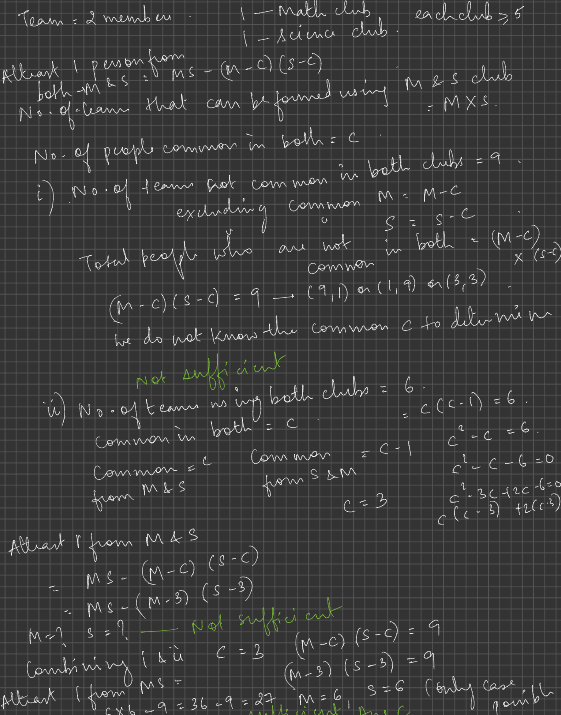 Team = 2 members. 1 – Math club each club ≥ 5
1 – science club.
Atleast 1 person from
both M & S = MS - (M-C) (S-C)
No. of teams that can be formed using M & S club
= M X S.
No. of people common in both = C
i) No. of teams not common in both clubs = 9.
excluding common M = M-C
S = S-C
Total people who are not common in both = (M-C) x (S-C)
(M-C) (S-C) = 9 → (9,1) or (1,9) or (3,3)
we do not know the common C to determine
Not sufficient
ii) No. of teams using both clubs = 6.
common in both = C = C(C-1) = 6.
Common = C from M & S Common from S & M = C-1 C² - C = 6.
C² - C - 6 = 0
C = 3 C² - 3C + 2C - 6 = 0
C(C-3) + 2(C-3)
Atleast 1 from M & S
= MS - (M-C) (S-C)
= MS - (M-3) (S-3)
M=? S=? — Not sufficient
Combining i & ii C = 3 (M-C) (S-C) = 9
(M-3) (S-3) = 9
Atleast 1 from MS = M=6, S=6 (only case possible
6x6 - 9 = 36 - 9 = 27
sufficient Ans C